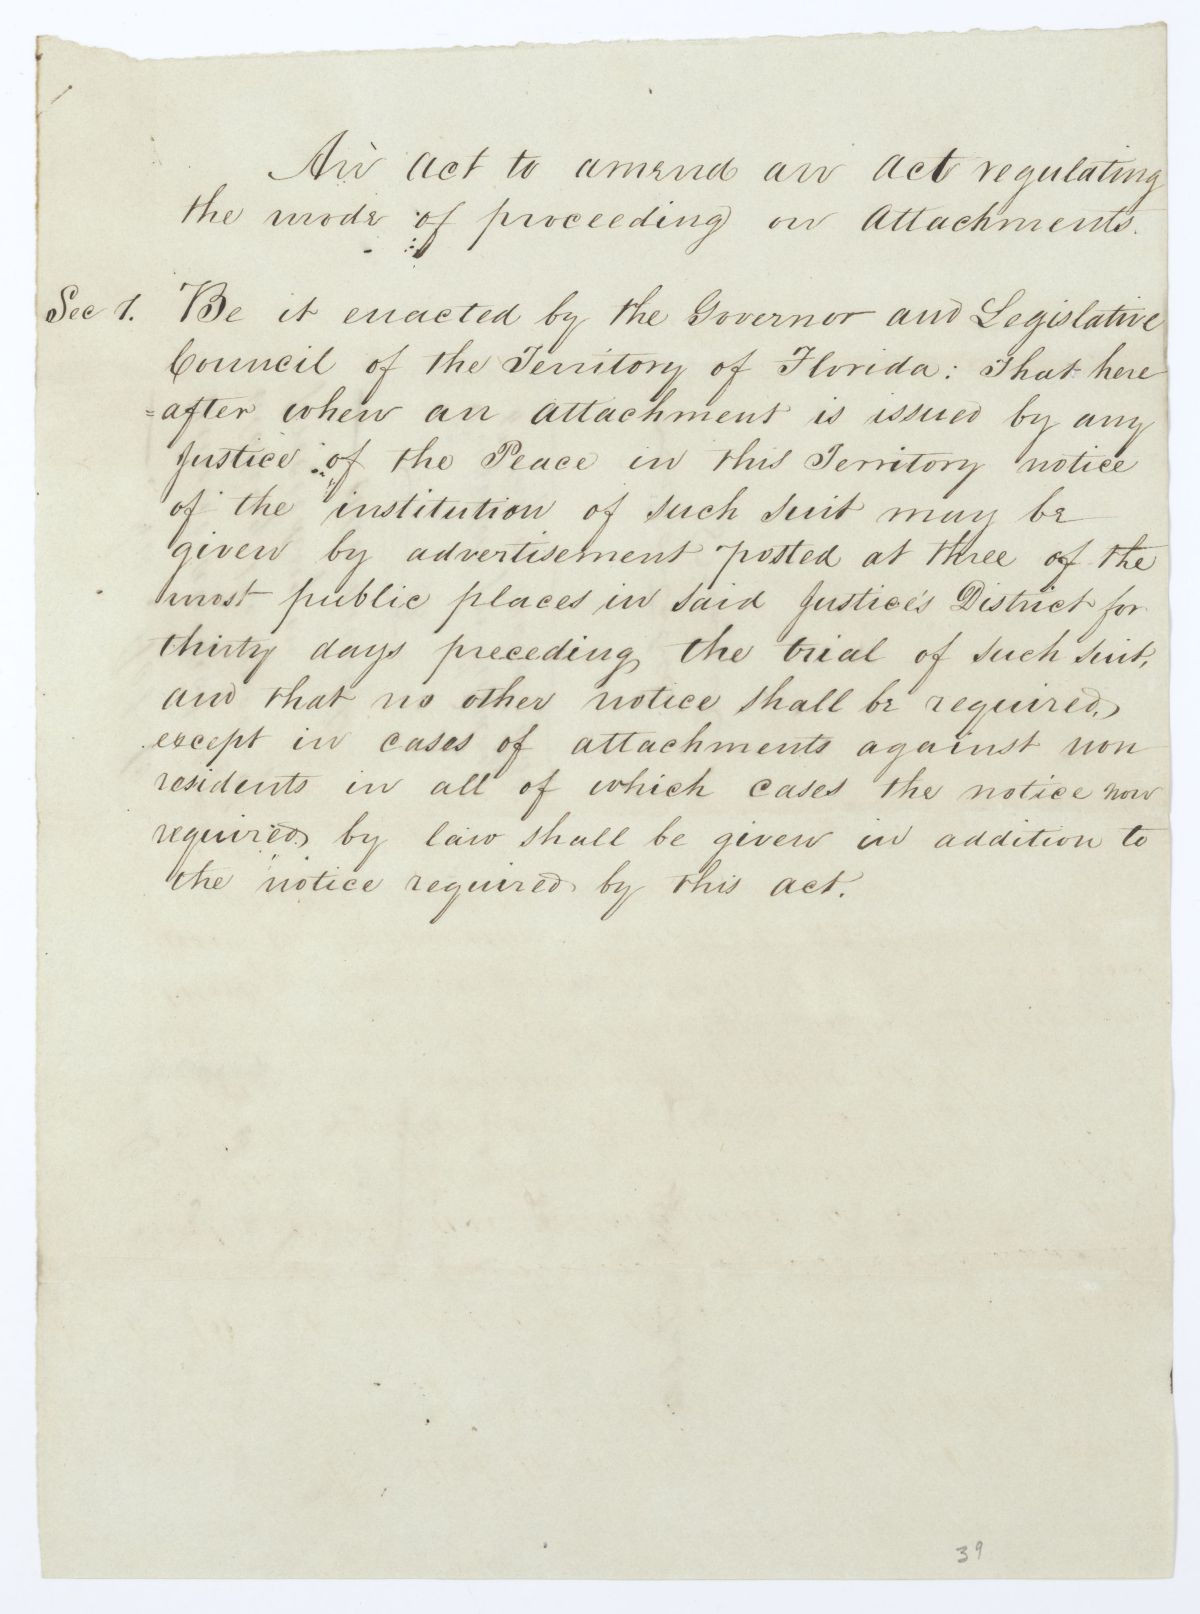 An act to amend an act regulating
the mode of proceeding on attachments.
Sec 1. Be it enacted by the Governor and Legislative
Council of the Territory of Florida: That here
=after when an attachment is issued by any
Justice of the Peace in this Territory notice
of the institution of such suit may be
given by advertisement posted at three of the
most public places in said Justice's District for
thirty days preceding the trial of such suit,
and that no other notice shall be required,
except in cases of attachments against non
residents in all of which cases the notice now
required by law shall be given in addition to
the notice required by this act.
39